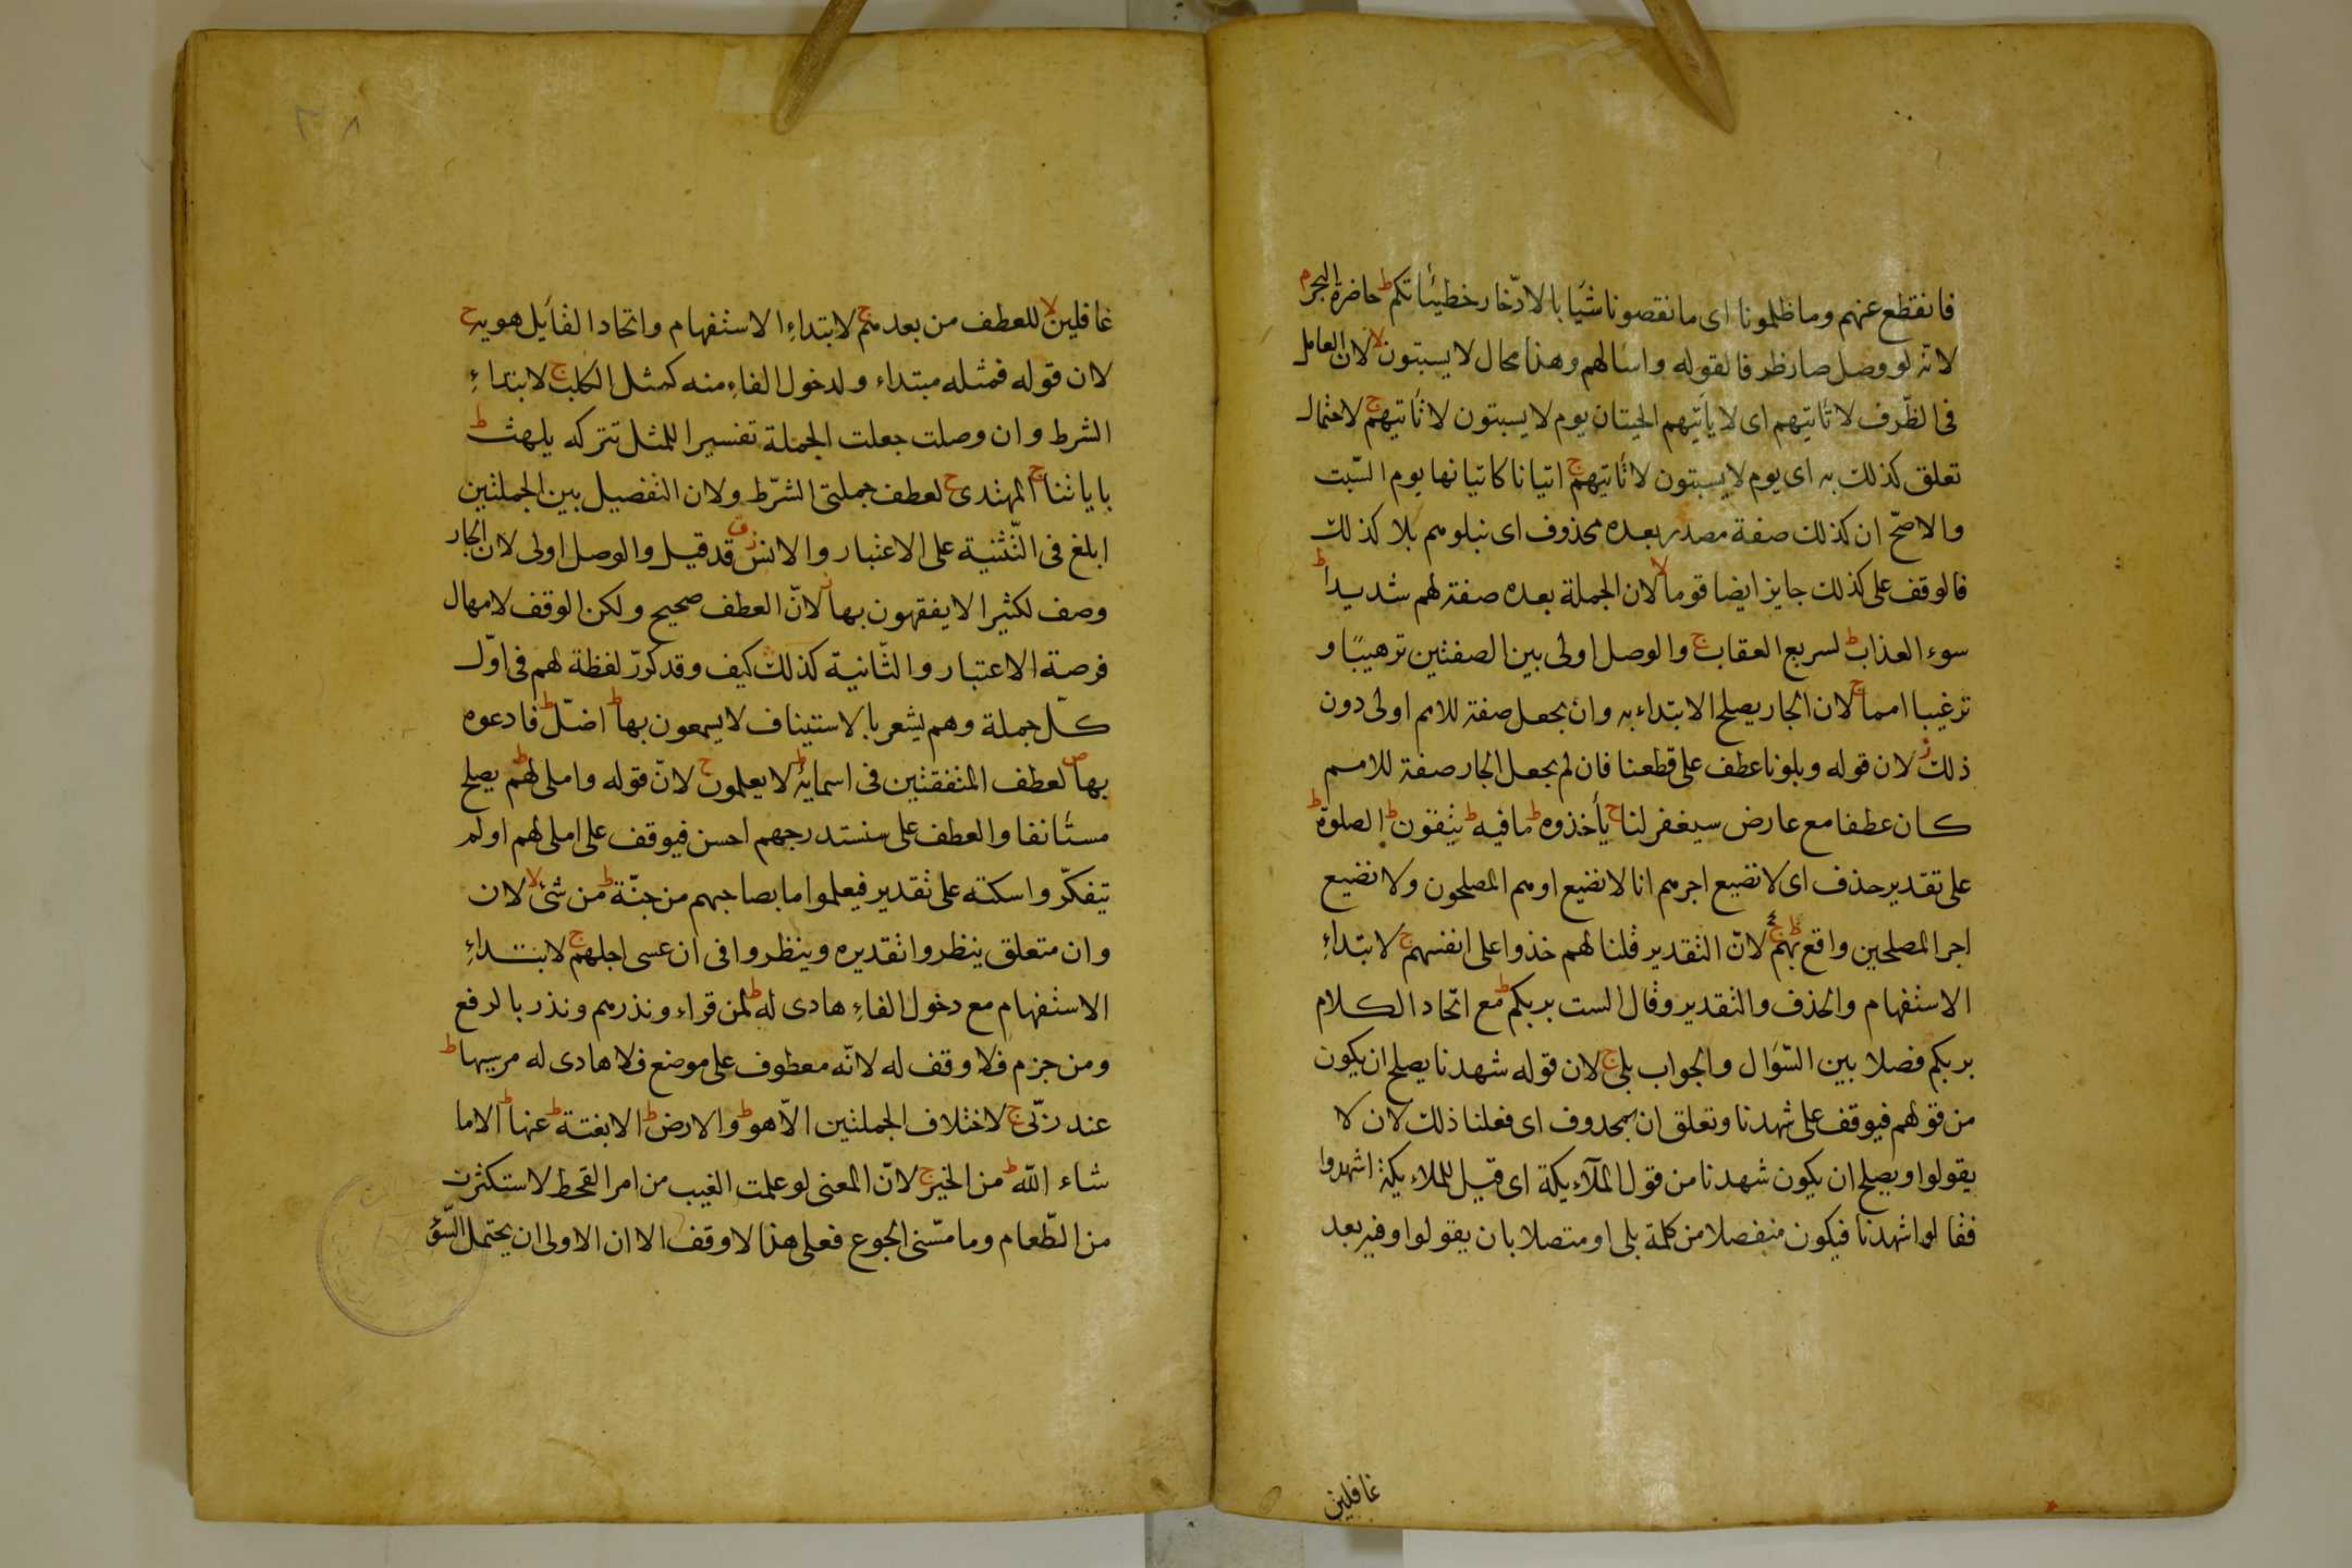 فانقطع عنهم وما ظلمونا ای ما نقصونا شيأ بالادّخار خطيئاتكم ط حاضرة البحر م
لانه لو وصل صار ظرفا لقوله واسالهم وهذا محال لا يسبتون لا لان العامل
فی الظّرف لا تأتيهم ای لا يأتيهم الحيتان يوم لا يسبتون لا تأتيهم ج لاحتمال
تعلق كذلك به ای يوم لا يسبتون لا تأتيهم ج اتيانا كاتيانها يوم السّبت
والاصحّ ان كذلك صفة مصدر بعده محذوف ای نبلوهم بلا كذلك
فالوقف علی كذلك جايز ايضا قوما لا لان الجملة بعده صفة لهم شديدا ط
سوء العذاب ط لسريع العقاب ج والوصل اولی بين الصفتين ترهيبًا و
ترغيبا امما ج لان الجار يصلح الابتداء به وان يجعل صفة للامم اولی دون
ذلك ز لان قوله وبلونا عطف علی قطعنا فان لم يجعل الجار صفة للامم
كان عطفا مع عارض سيغفر لنا ج يأخذوه ط ما فيه ط يتقون ط الصلوة ط
علی تقدير حذف ای لا نضيع اجرهم انا لا نضيع اوهم المصلحون ولا نضيع
اجر المصلحين واقع بهم ج لانّ التقدير قلنا لهم خذوا علی انفسهم ج لابتداءِ
الاستفهام والحذف والتقدير وقال الست بربكم ط مع اتّحاد الكلام
بربكم فصلا بين السّؤال والجواب بلی ج لان قوله شهدنا يصلح ان يكون
من قولهم فيوقف علی شهدنا وتعلق ان بمحدوف ای فعلنا ذلك لان لا
يقولوا ويصلح ان يكون شهدنا من قول الملآءيكة ای قيل للملاءيكة اشهدوا
فقالوا شهدنا فيكون منفصلا من كلمة بلی او متصلا بان يقولوا وفيه بعد
غافلين
٣٨
غافلين لا للعطف من بعدهم ج لابتداءِ الاستفهام واتحاد القأيل هويه ج
لان قوله فمثله مبتداء ولدخول الفاءِ منه كمثل الكلب ج لابتداءِ
الشرط وان وصلت جعلت الجملة تفسيرا للمثل تتركه يلهث ط
باياتنا ج المهتدی ج لعطف جملتی الشرّط ولان التفصيل بين الجملتين
ابلغ فی التّثنية علی الاعتبار والانس ز ق قد قيل والوصل اولی لان الجار
وصف لكثيرا لا يفقهون بها ز لانّ العطف صحيح ولكن الوقف لامهال
فرصة الاعتبار والثّانية كذلك كيف وقد كررّ لفظة لهم فی اوّل
كلّ جملة وهم يشعر بالاستيناف لا يسمعون بها ط اضلّ ط فادعوه
بها ص لعطف المتفقتين فی اسمايه ط لا يعلمون ج لانّ قوله واملی لهم ط يصلح
مستأنفا والعطف علی سنستدرجهم احسن فيوقف علی املی لهم اولم
يتفكّروا سكته علی تقدير فيعلموا ما بصاحبهم من جنّة ط من شئ لا لان
وان متعلق ينظروا تقديره وينظروا فی ان عسی اجلهم ج لابتداءِ
الاستفهام مع دخول الفاءِ هادی له ط لمن قراء ونذرهم ونذر بالرفع
ومن جزم فلا وقف له لانّه معطوف علی موضع فلا هادی له مرسيها ط
عند ربّی ج لاختلاف الجملتين الاّ هو ط والارض ط الا بغتة ط عنها ط الا ما
شاء الله ط من الخير ج لانّ المعنی لو علمت الغيب من امر القحط لاستكثرت
من الطّعام وما مسّنی الجوع فعلی هذا لا وقف الا ان الاولی ان يحتمل السّؤ